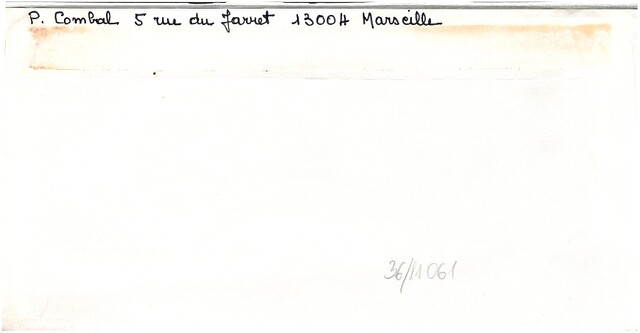 P. Combal 5 rue du Jarret 13004 Marseille
36/11061